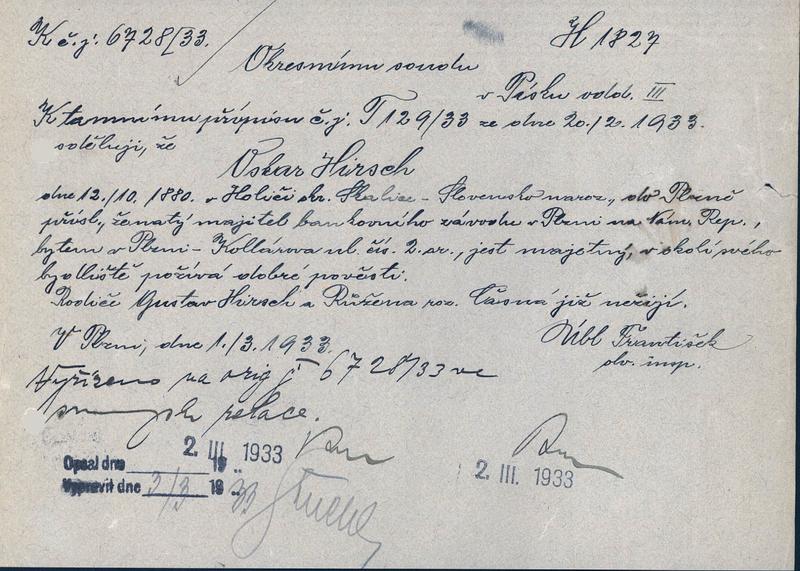 K č.j. 6728/33.
H 1827
Okresnímu soudu
v Písku odd. III
K tamnímu přípisu č.j. T 129/33 ze dne 20./2. 1933.
sděluji, že
Oskar Hirsch
dne 12./10. 1880. v Holiči okr. Skalice - Slovensko naroz., do Plzně
přísl., ženatý majitel bankovního závodu v Plzni na Nám. Rep.,
bytem v Plzni - Kollárova ul. čís. 2. sr., jest majetný, v okolí svého
bydliště požívá dobré pověsti.
Rodiče Gustav Hirsch a Růžena roz. Časná již nežijí.
V Plzni, dne 1./3. 1933.
Úbl František
obv. insp.
Vyřízeno na orig j 6728/33 ve
relace.
2. III 1933
Opsal dne 19
Vypravil dne 3/3 19 33
2. III. 1933